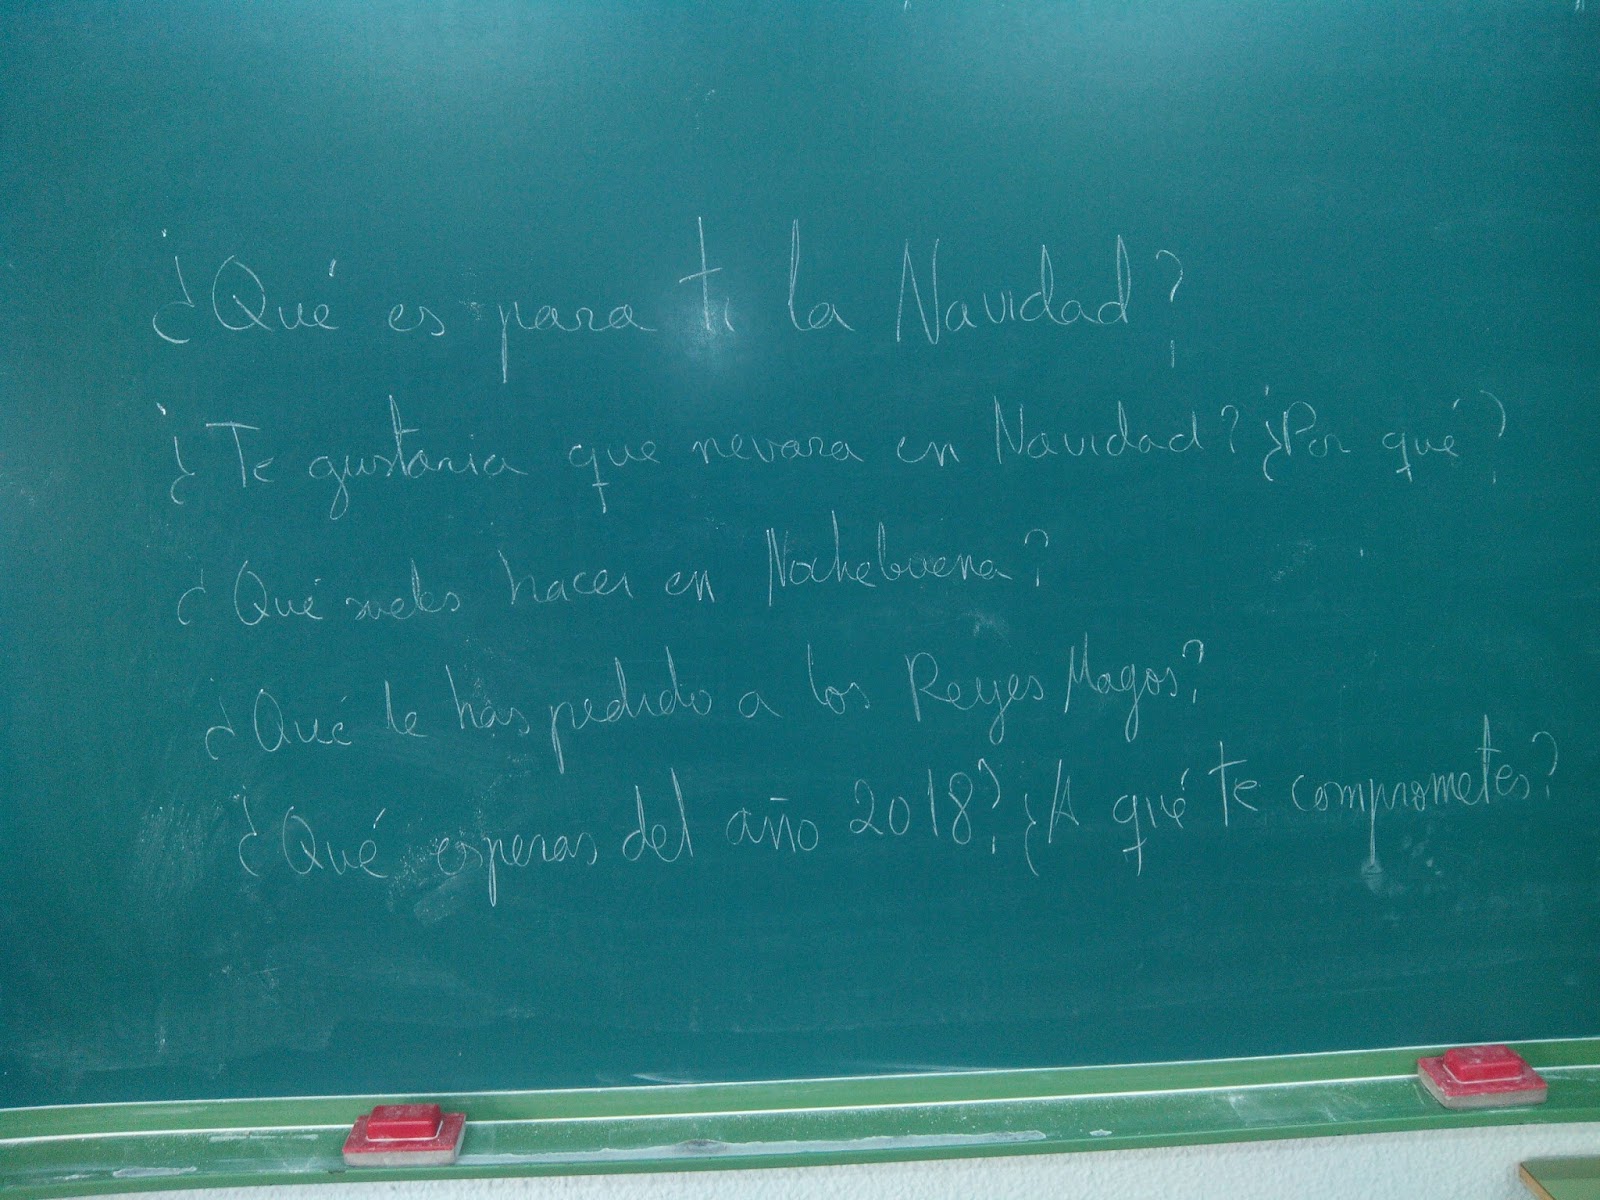 ¿Qué es para ti la Navidad?
¿Te gustaria que nevara en Navidad? ¿Por qué?
¿Qué sueles hacer en Nochebuena?
¿Qué le has pedido a los Reyes Magos?
¿Qué esperas del año 2018? ¿A qué te comprometes?